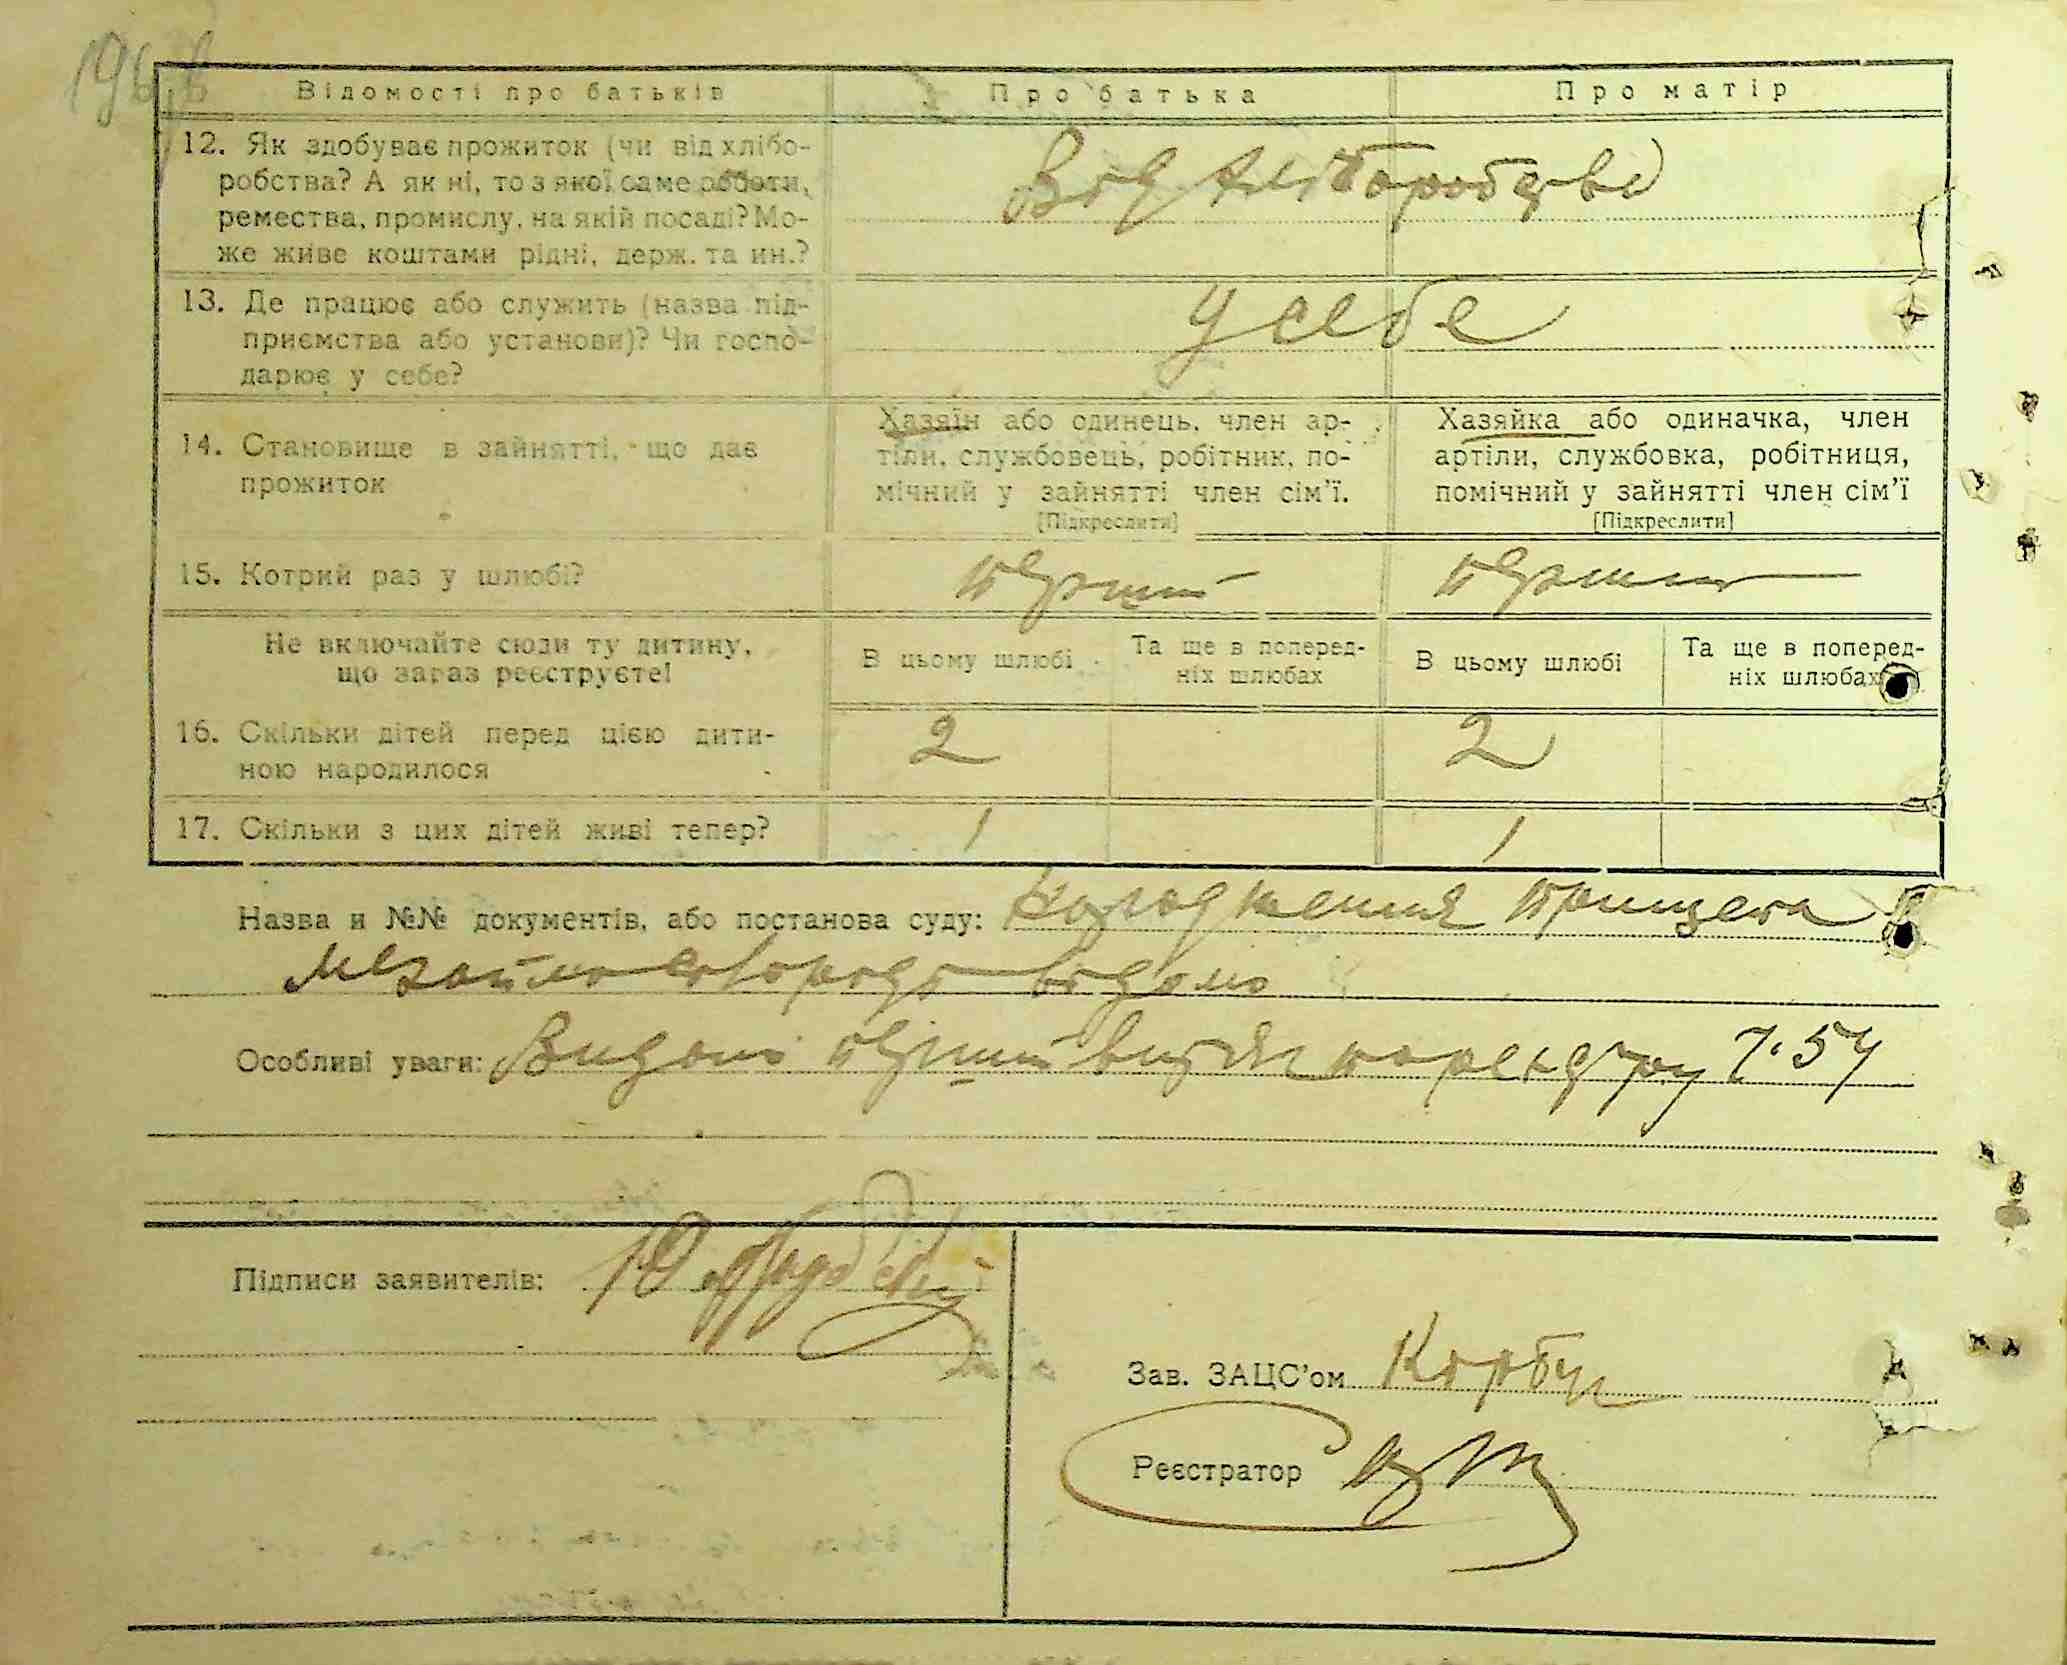 196
Відомості про батьків Про батька Про матір
12. Як здобуває прожиток (чи від хлібо-
робства? А як ні, то з якої саме роботи,
ремества, промислу, на якій посаді? Мо-
же живе коштами рідні, держ. та ин.?
Від хліборобства
13. Де працює або служить (назва під-
приємства або установи)? Чи госпо-
дарює у себе?
У себе
14. Становище в зайнятті, що дає
прожиток
Хазяїн або одинець, член ар-
тіли, службовець, робітник, по-
мічний у зайнятті член сім'ї.
[Підкреслити]
Хазяйка або одиначка, член
артіли, службовка, робітниця,
помічний у зайнятті член сім'ї
[Підкреслити]
15. Котрий раз у шлюбі? перший перший
Не включайте сюди ту дитину,
що зараз реєструєте!
В цьому шлюбі
Та ще в поперед-
ніх шлюбах
В цьому шлюбі
Та ще в поперед-
ніх шлюбах
16. Скільки дітей перед цією дити-
ною народилося
2 2
17. Скільки з цих дітей живі тепер? 1 1
Назва и №№ документів, або постанова суду:
Особливі уваги: Видано перший витяг 7.54
Підписи заявителів:
Зав. ЗАЦС'ом Корбул
Реєстратор